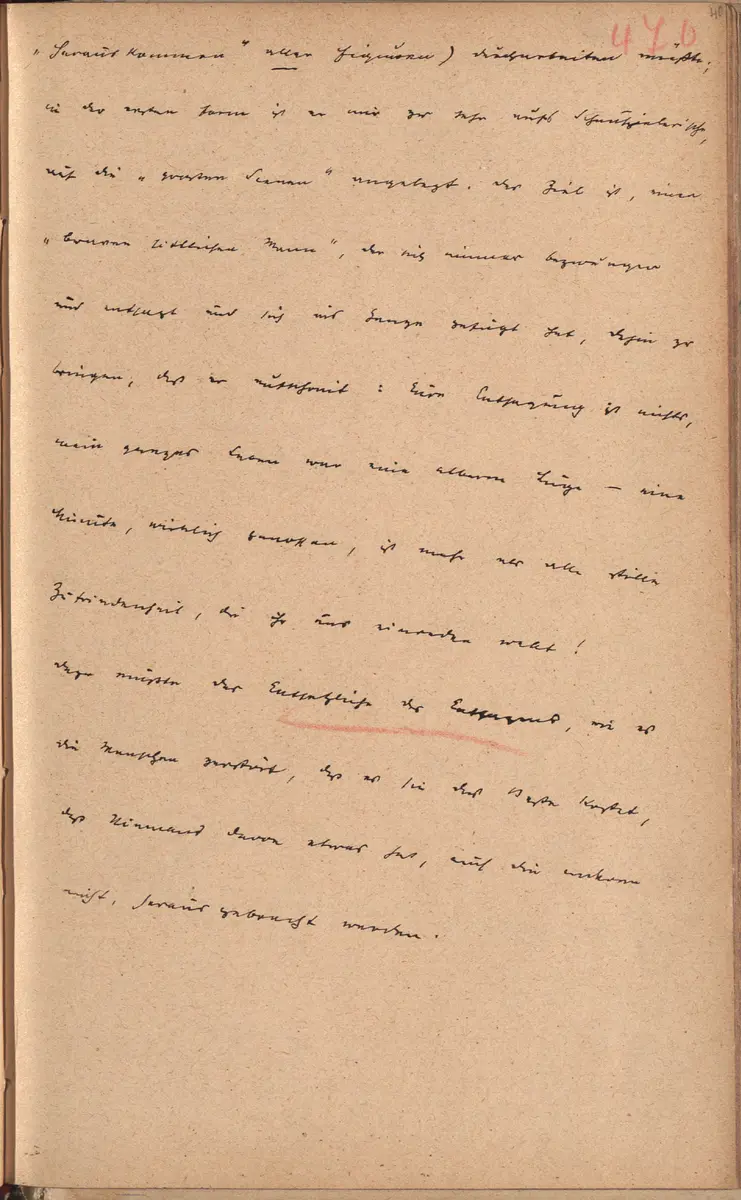 40
470
„Herauskommen“ aller Figuren) durcharbeiten müßte;
in der ersten Form ist er mir zu sehr aufs Schauspielerische,
auf die „großen Scenen“ angelegt. Das Ziel ist, einen
„braven sittlichen Mann“, der sich immer bezwungen
und entsagt und sich als Zeuge gefügt hat, dahin zu
bringen, daß er aufschreit: Eure Entsagung ist nichts,
mein ganzes Leben war eine alberne Lüge – eine
Minute, wirklich genossen, ist mehr als alle stille
Zufriedenheit, die ihr uns einreden wollt!
Dazu müßte das Entsetzliche des Entsagens, wie es
die Menschen zerstört, daß es sie das Beste kostet,
daß Niemand davon etwas hat, auch die anderen
nicht, herausgebracht werden.